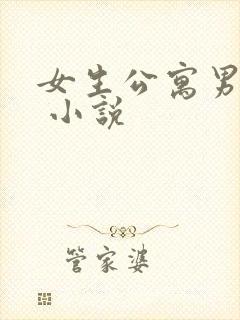 女生公寓男
小說
管家婆